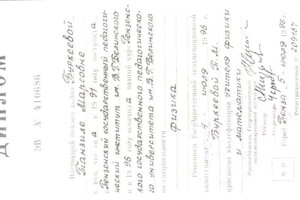 ДИПЛОМ
ЭВ № 410686
Буркеевой
Танзиле Марсовне
в том, что она в 1991 году поступила
в Пензенский государственный педагоги-
ческий институт им. В.Г. Белинского
и в 1996 году окончила Пензенс-
кого государственного педагогическо-
го университета им. В.Г. Белинского
по специальности
физика
Решением Государственной экзаменационной
комиссии от 4 июля 1996 г.
Буркеевой Т.М.
присвоена квалификация учителя физики
и математики
Ректор
Город Пенза 5 июля 1996 г.